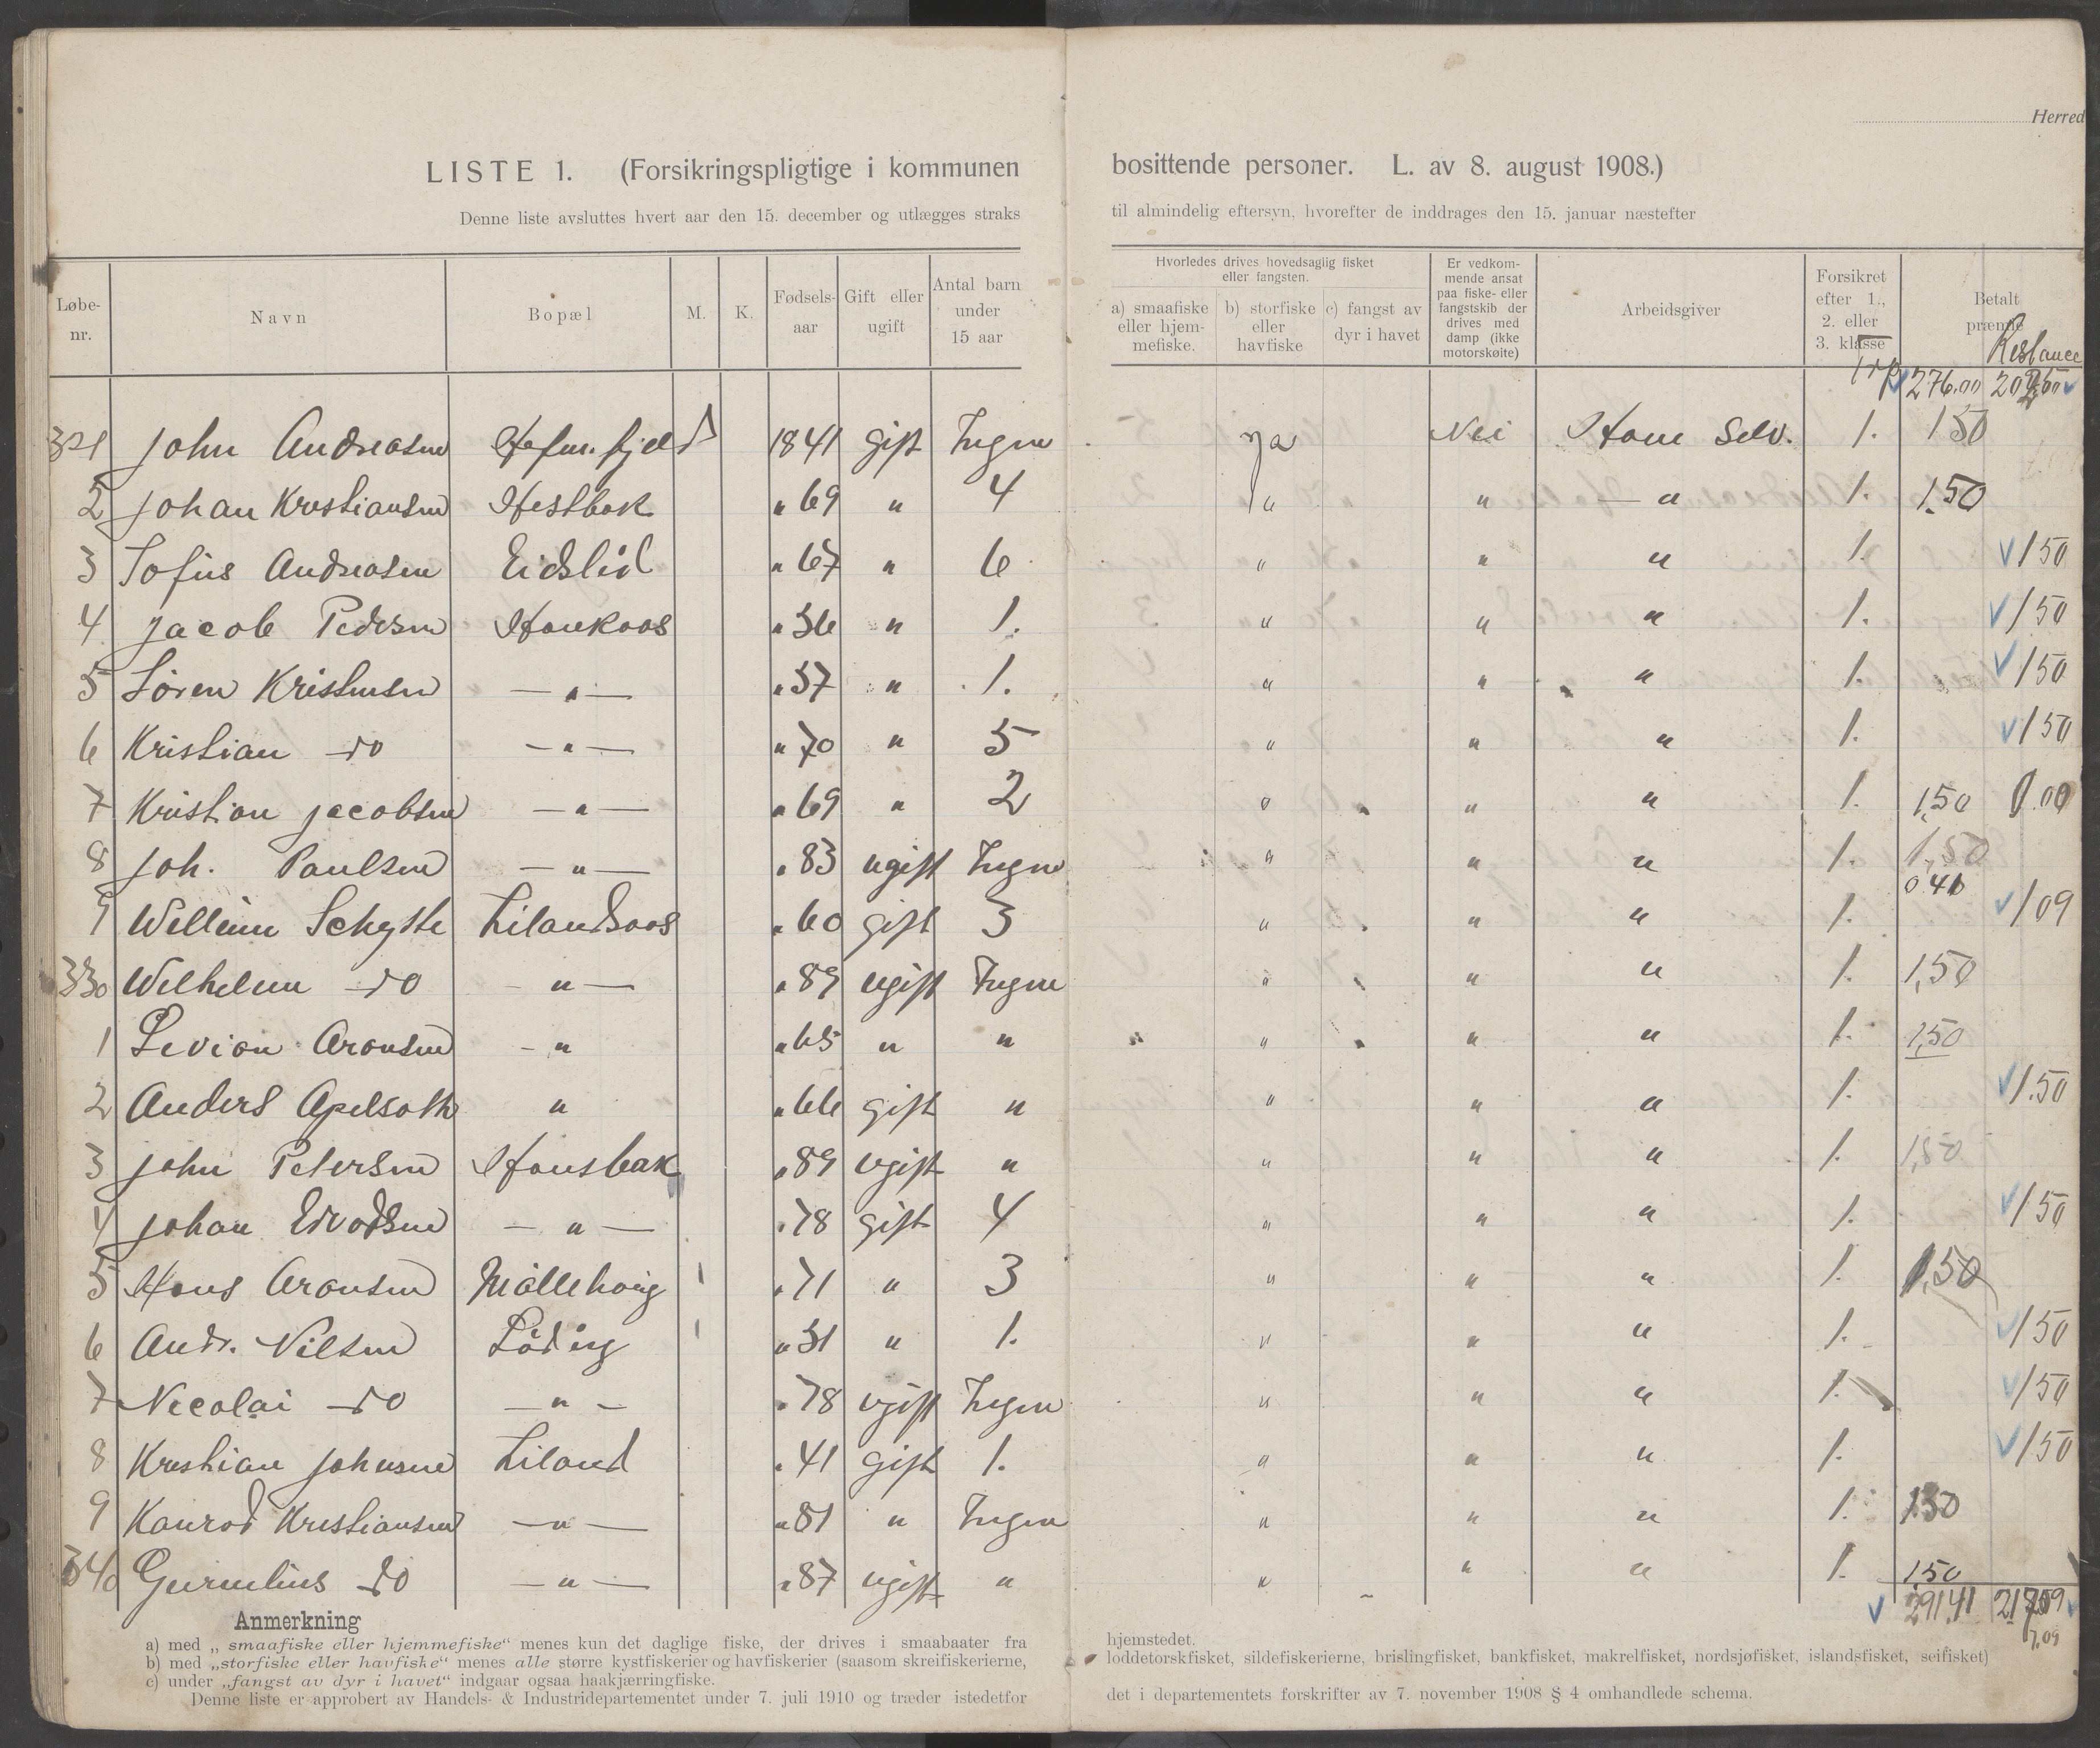 Herred
LISTE 1. (Forsikringspligtige i kommunen bosittende personer. L. av 8. august 1908.)
Denne liste avsluttes hvert aar den 15. december og utlægges straks til almindelig eftersyn, hvorefter de inddrages den 15. januar næstefter
Løbe-nr. Navn Bopæl M. K. Fødsels-aar Gift eller ugift Antal barn under 15 aar Hvorledes drives hovedsaglig fisket eller fangsten. a) smaafiske eller hjem-mefiske. b) storfiske eller havfiske c) fangst av dyr i havet Er vedkom-mende ansat paa fiske- eller fangstskib der drives med damp (ikke motorskøite) Arbeidsgiver Forsikret efter 1., 2. eller 3. klasse Betalt præmie Restance
276.00
321 John Andreasen 1841 gift Ingen ja Nei Ham Selv. 1. 150
2 Johan Kristiansen Hestbak " 69 " 4 " " — " 1. 1.50
3 Sofus Andreasen Eidslid " 67 " 6 " " " 1. 150
4 Jacob Pedersen " 56 " 1. " " " 1. 150
5 Sören Kristensen — " — " 57 " 1. " " " 1. 150
6 Kristian do — " — " 70 " 5 " " " 1. 150
7 Kristian Jacobsen — " — " 69 " 2 " " " 1. 1,50 0.00
8 Joh. Paulsen — " — " 83 ugift Ingen " " " 1. 1,50
9 Schytte Lilandsaas " 60 gift 3 " " " 1. 0.41 1 09
330 Wilhelm do " — " 89 ugift Ingen " " " 1. 1,50
1 Aronsen - " " 65 " " " " " 1. 1,50
2 Anders " " 66 gift " " " " 1. 1.50
3 John Petersen Hansbak " 89 ugift " " " " 1. 1,50
4 Johan — " — " 78 gift 4 " " " 1. 150
5 Hans Aronsen " 71 " 3 " " " 1. 1,50
6 Andr. Nilsen Löding " 31 " 1. " " " 1. 150
7 Necolai do — " — " 78 ugift Ingen " " " 1. 150
8 Kristian Johnsen Liland " 41 gift 1. " " " 1. 150
9 Konrad Kristiansen — " — " 81 " Ingen " " " 1. 1.50
340 do — " — " 87 ugift " " " " 1. 1,50
291.41
7.09
Anmerkning
a) med „smaafiske eller hjemmefiske“ menes kun det daglige fiske, der drives i smaabaater fra hjemstedet.
b) med „storfiske eller havfiske“ menes alle større kystfiskerier og havfiskerier (saasom skreifiskerierne, loddetorskfisket, sildefiskerierne, brislingfisket, bankfisket, makrelfisket, nordsjøfisket, islandsfisket, seifisket)
c) under „fangst av dyr i havet“ indgaar ogsaa haakjærringfiske.
Denne liste er approbert av Handels- & Industridepartementet under 7. juli 1910 og træder istedetfor det i departementets forskrifter av 7. november 1908 § 4 omhandlede schema.